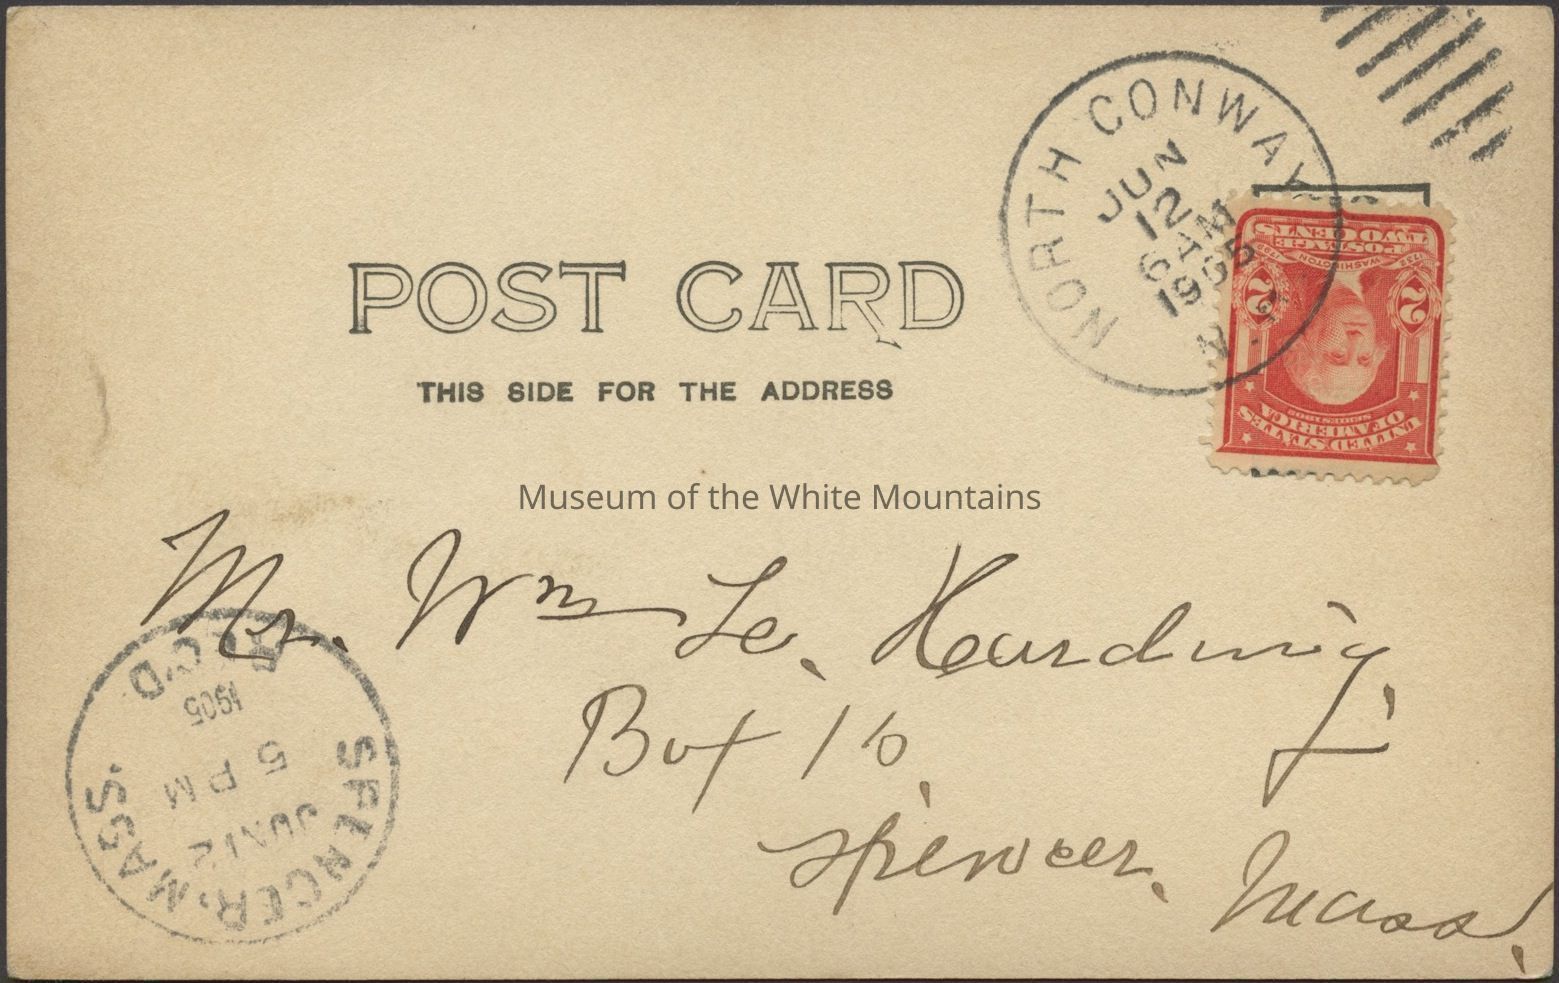 NORTH CONWAY
JUN
12
6 AM
1905
N.H.
POSTAGE
TWO CENTS
1732 WASHINGTON 1799
2 2
SERIES 1902
UNITED STATES
OF AMERICA
POST CARD
THIS SIDE FOR THE ADDRESS
Museum of the White Mountains
Mr. Wm Le. Harding,
Box 16,
Spencer, Mass.
REC'D
1905
5 PM
JUN 12
SPENCER, MASS.